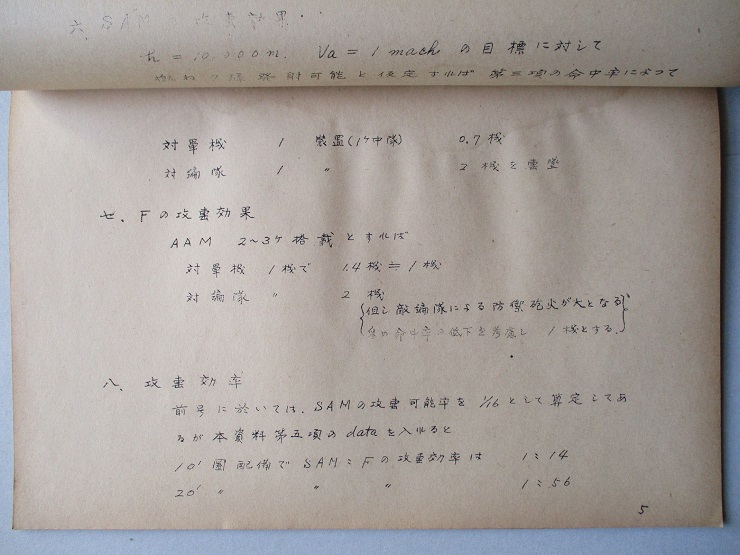 六、SAMの攻害効果.
h = 10,000m. Va = 1 machの目標に対して
発射可能と仮定すれば 第三項の命中率によって
対單機 1 裝置(1ヶ中隊) 0.7 機
対編隊 1 〃 2 機を
七、Fの攻害効果
AAM 2~3ヶ搭載とすれば
対單機 1機で 1.4機≒1機
対編隊 〃 2 機
但し敵編隊による防禦砲火が大となる
命中率の低下を考慮し 1機とする.
八、攻害効率
前号に於いては、SAMの攻害可能率を 1/16として算定してあ
るが本資料第五項のdataを入れると
10' 圏配備でSAM:Fの攻害効率は 1:14
20' 〃 〃 〃 1:56
5